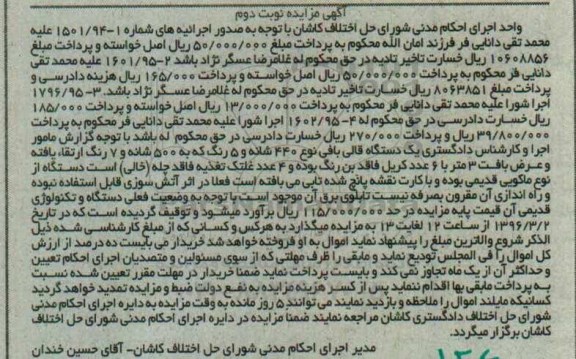 آگهی مزایده نوبت دوم
واحد اجرای احکام مدنی شورای حل اختلاف کاشان با توجه به صدور اجرائیه های شماره ۱-۱۵۰۱/۹۴ علیه
محمد تقی دانایی فر فرزند امان الله محکوم به پرداخت مبلغ ۵۰/۰۰۰/۰۰۰ ریال اصل خواسته و پرداخت مبلغ
۱۰۶۰۸۸۵۶ ریال خسارت تاخیر تادیه در حق محکوم له غلامرضا عسگر نژاد باشد ۲-۱۶۰۱/۹۵ علیه محمد تقی
دانایی فر محکوم به پرداخت ۵۰/۰۰۰/۰۰۰ ریال اصل خواسته و پرداخت ۱۶۵/۰۰۰ ریال هزینه دادرسی و
پرداخت مبلغ ۸۰۶۳۸۵۱ ریال خسارت تاخیر تادیه در حق محکوم له غلامرضا عسگر نژاد باشد. ۳-۱۷۹۶/۹۵
اجرا شورا علیه محمد تقی دانایی فر محکوم به پرداخت ۱۳/۰۰۰/۰۰۰ ریال اصل خواسته و پرداخت ۱۸۵/۰۰۰
ریال خسارت دادرسی در حق محکوم له ۴-۱۶۰۲/۹۵ اجرا شورا علیه محمد تقی دانایی فر محکوم به پرداخت
۳۹/۸۰۰/۰۰۰ ریال و پرداخت ۲۷۰/۰۰۰ ریال خسارت دادرسی در حق محکوم له باشد با توجه گزارش مامور
اجرا و کارشناس دادگستری یک دستگاه قالی بافی نوع ۴۴۰ شانه و ۵ رنگ که به ۵۰۰ شانه و ۷ رنگ ارتقاء یافته
و عرض بافت ۳ متر با ۶ عدد کریل فاقد بن رنگ بوده و ۴ عدد غلتک تغذیه فاقد چله (خالی) است دستگاه از
نوع ماکویی قدیمی بوده و با کارت نقشه پانچ شده تابی می بافته است فعلا در اثر آتش سوزی قابل استفاده نبوده
و راه اندازی آن مقرون بصرفه نیست. تابلوی برق آن موجود است با توجه به وضعیت فعلی دستگاه و تکنولوژی
قدیمی آن قیمت پایه مزایده در حد ۱۱۵/۰۰۰/۰۰۰ ریال برآورد میشود و توقیف گردیده است که در تاریخ
۱۳۹۶/۳/۲ از ساعت ۱۲ لغایت ۱۳ به مزایده میگذارد به هرکس و کسانی که از مبلغ کارشناسی شده ذیل
الذکر شروع والاترین مبلغ را پیشنهاد نماید اموال به او فروخته خواهد شد خریدار می بایست ده درصد از ارزش
کل اموال را فی المجلس تودیع نماید و مابقی را ظرف مهلتی که از سوی مسئولین و متصدیان اجرای احکام تعیین
و حداکثر آن از یک ماه تجاوز نمی کند و بایست پرداخت نماید ضمنا خریدار در مهلت مقرر تعیین شده نسبت
به پرداخت مابقی بها اقدام ننماید پس از کسر هزینه مزایده به نفع دولت ضبط و مزایده تمدید خواهد گردید
کسانیکه مایلند اموال را ملاحظه و بازدید نمایند می توانند ۵ روز مانده به وقت مزایده به دایره اجرای احکام مدنی
شورای حل اختلاف دادگستری کاشان مراجعه نمایند ضمنا مزایده در دایره اجرای احکام مدنی شورای حل اختلاف
کاشان برگزار میگردد.
مدیر اجرای احکام مدنی شورای حل اختلاف کاشان- آقای حسین خندان